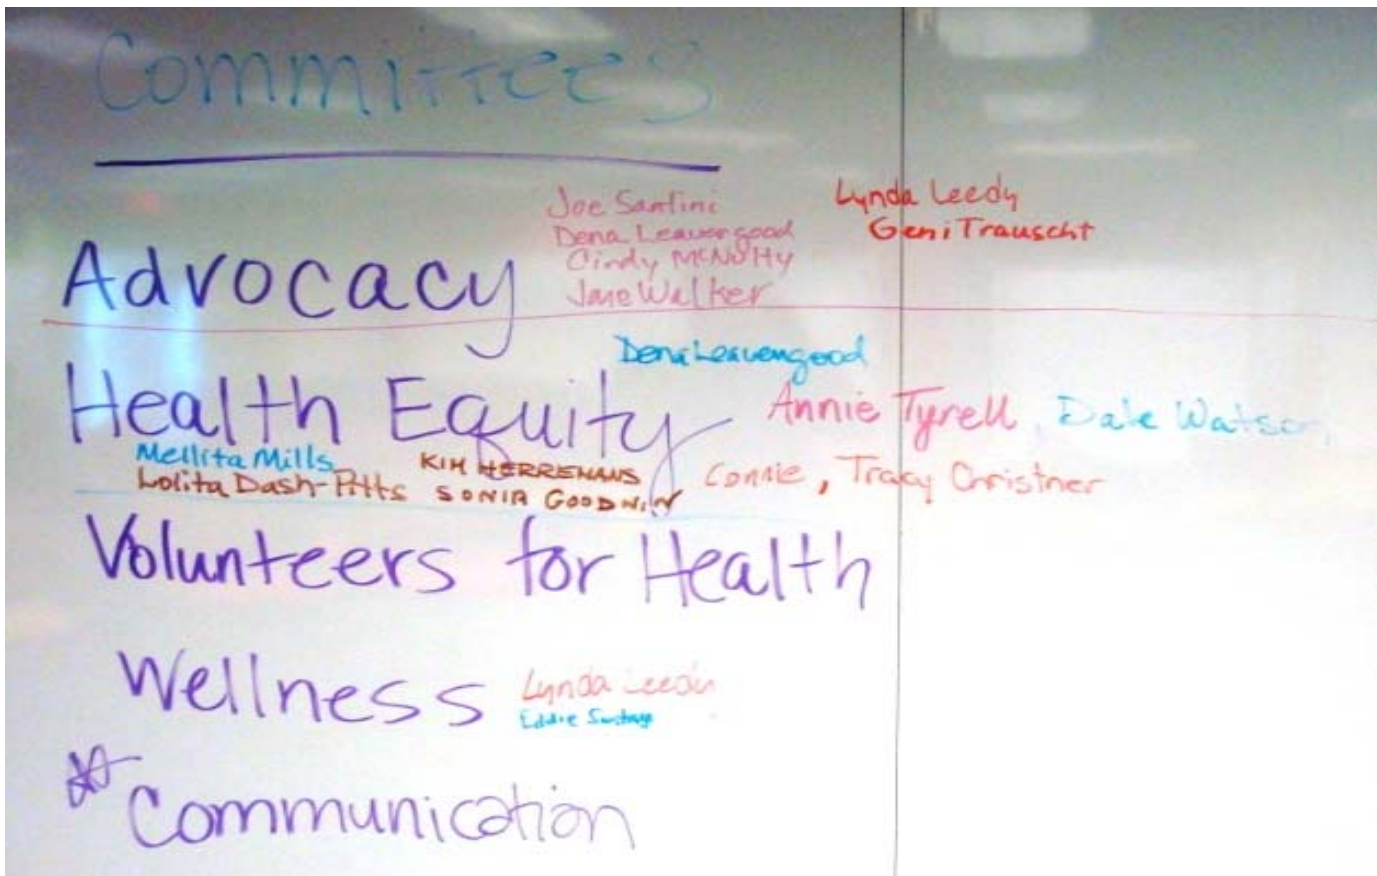 Committees
Joe Santini
Dena Leavengood
Cindy McNulty
Jane Walker
Lynda Leedy
Geni Trauscht
Advocacy
Dena Leavengood
Health Equity
Annie Tyrell, Dale Watson,
Mellita Mills
Lolita Dash-Pitts
KIM HERREMANS
SONIA GOODWIN
Connie, Tracy Christner
Volunteers for Health
Wellness
Lynda Leedy
Eddie
Communication